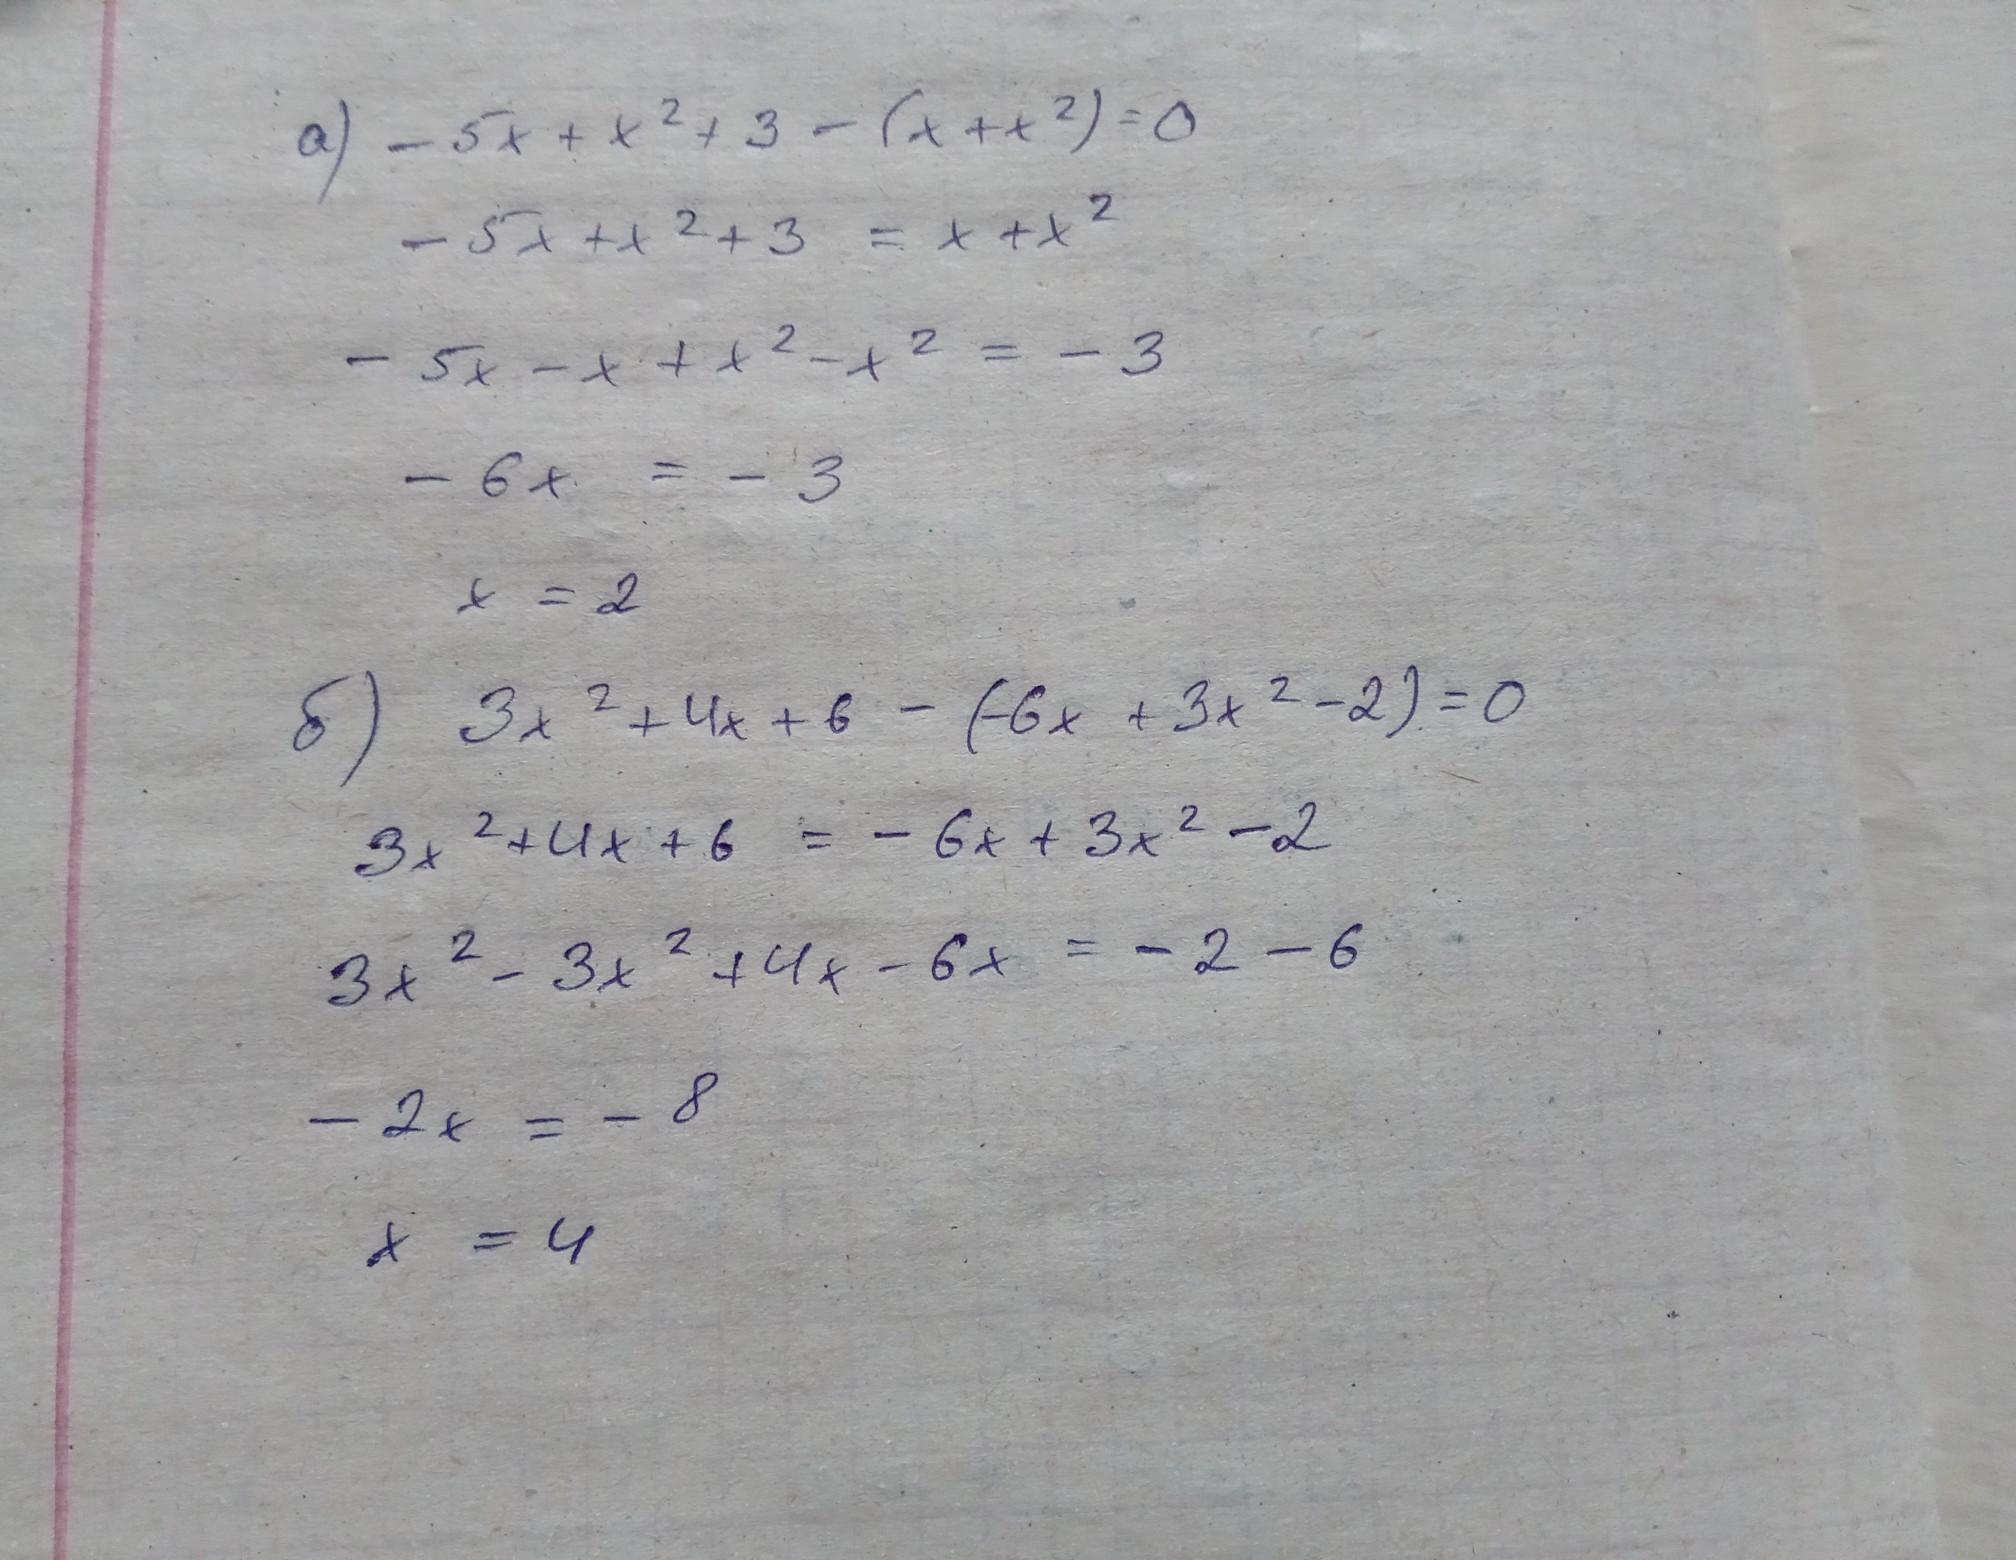 а) - 5x + x² + 3 - (x + x²) = 0
- 5x + x² + 3 = x + x²
- 5x - x + x² - x² = - 3
- 6x = - 3
x = 2
б) 3x² + 4x + 6 - (-6x + 3x² - 2) = 0
3x² + 4x + 6 = - 6x + 3x² - 2
3x² - 3x² + 4x - 6x = - 2 - 6
- 2x = - 8
x = 4